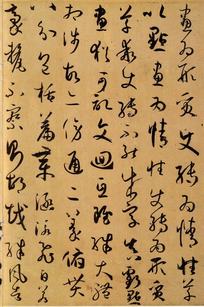 畫為形質使轉為情性草
以點畫為情性使轉為形質
草乖使轉不能成字真虧點
畫猶可記文迴互雖殊大體
相涉故亦傍通二篆俯貫
八分包括篇章涵泳飛白若
毫釐不察則胡越殊風者